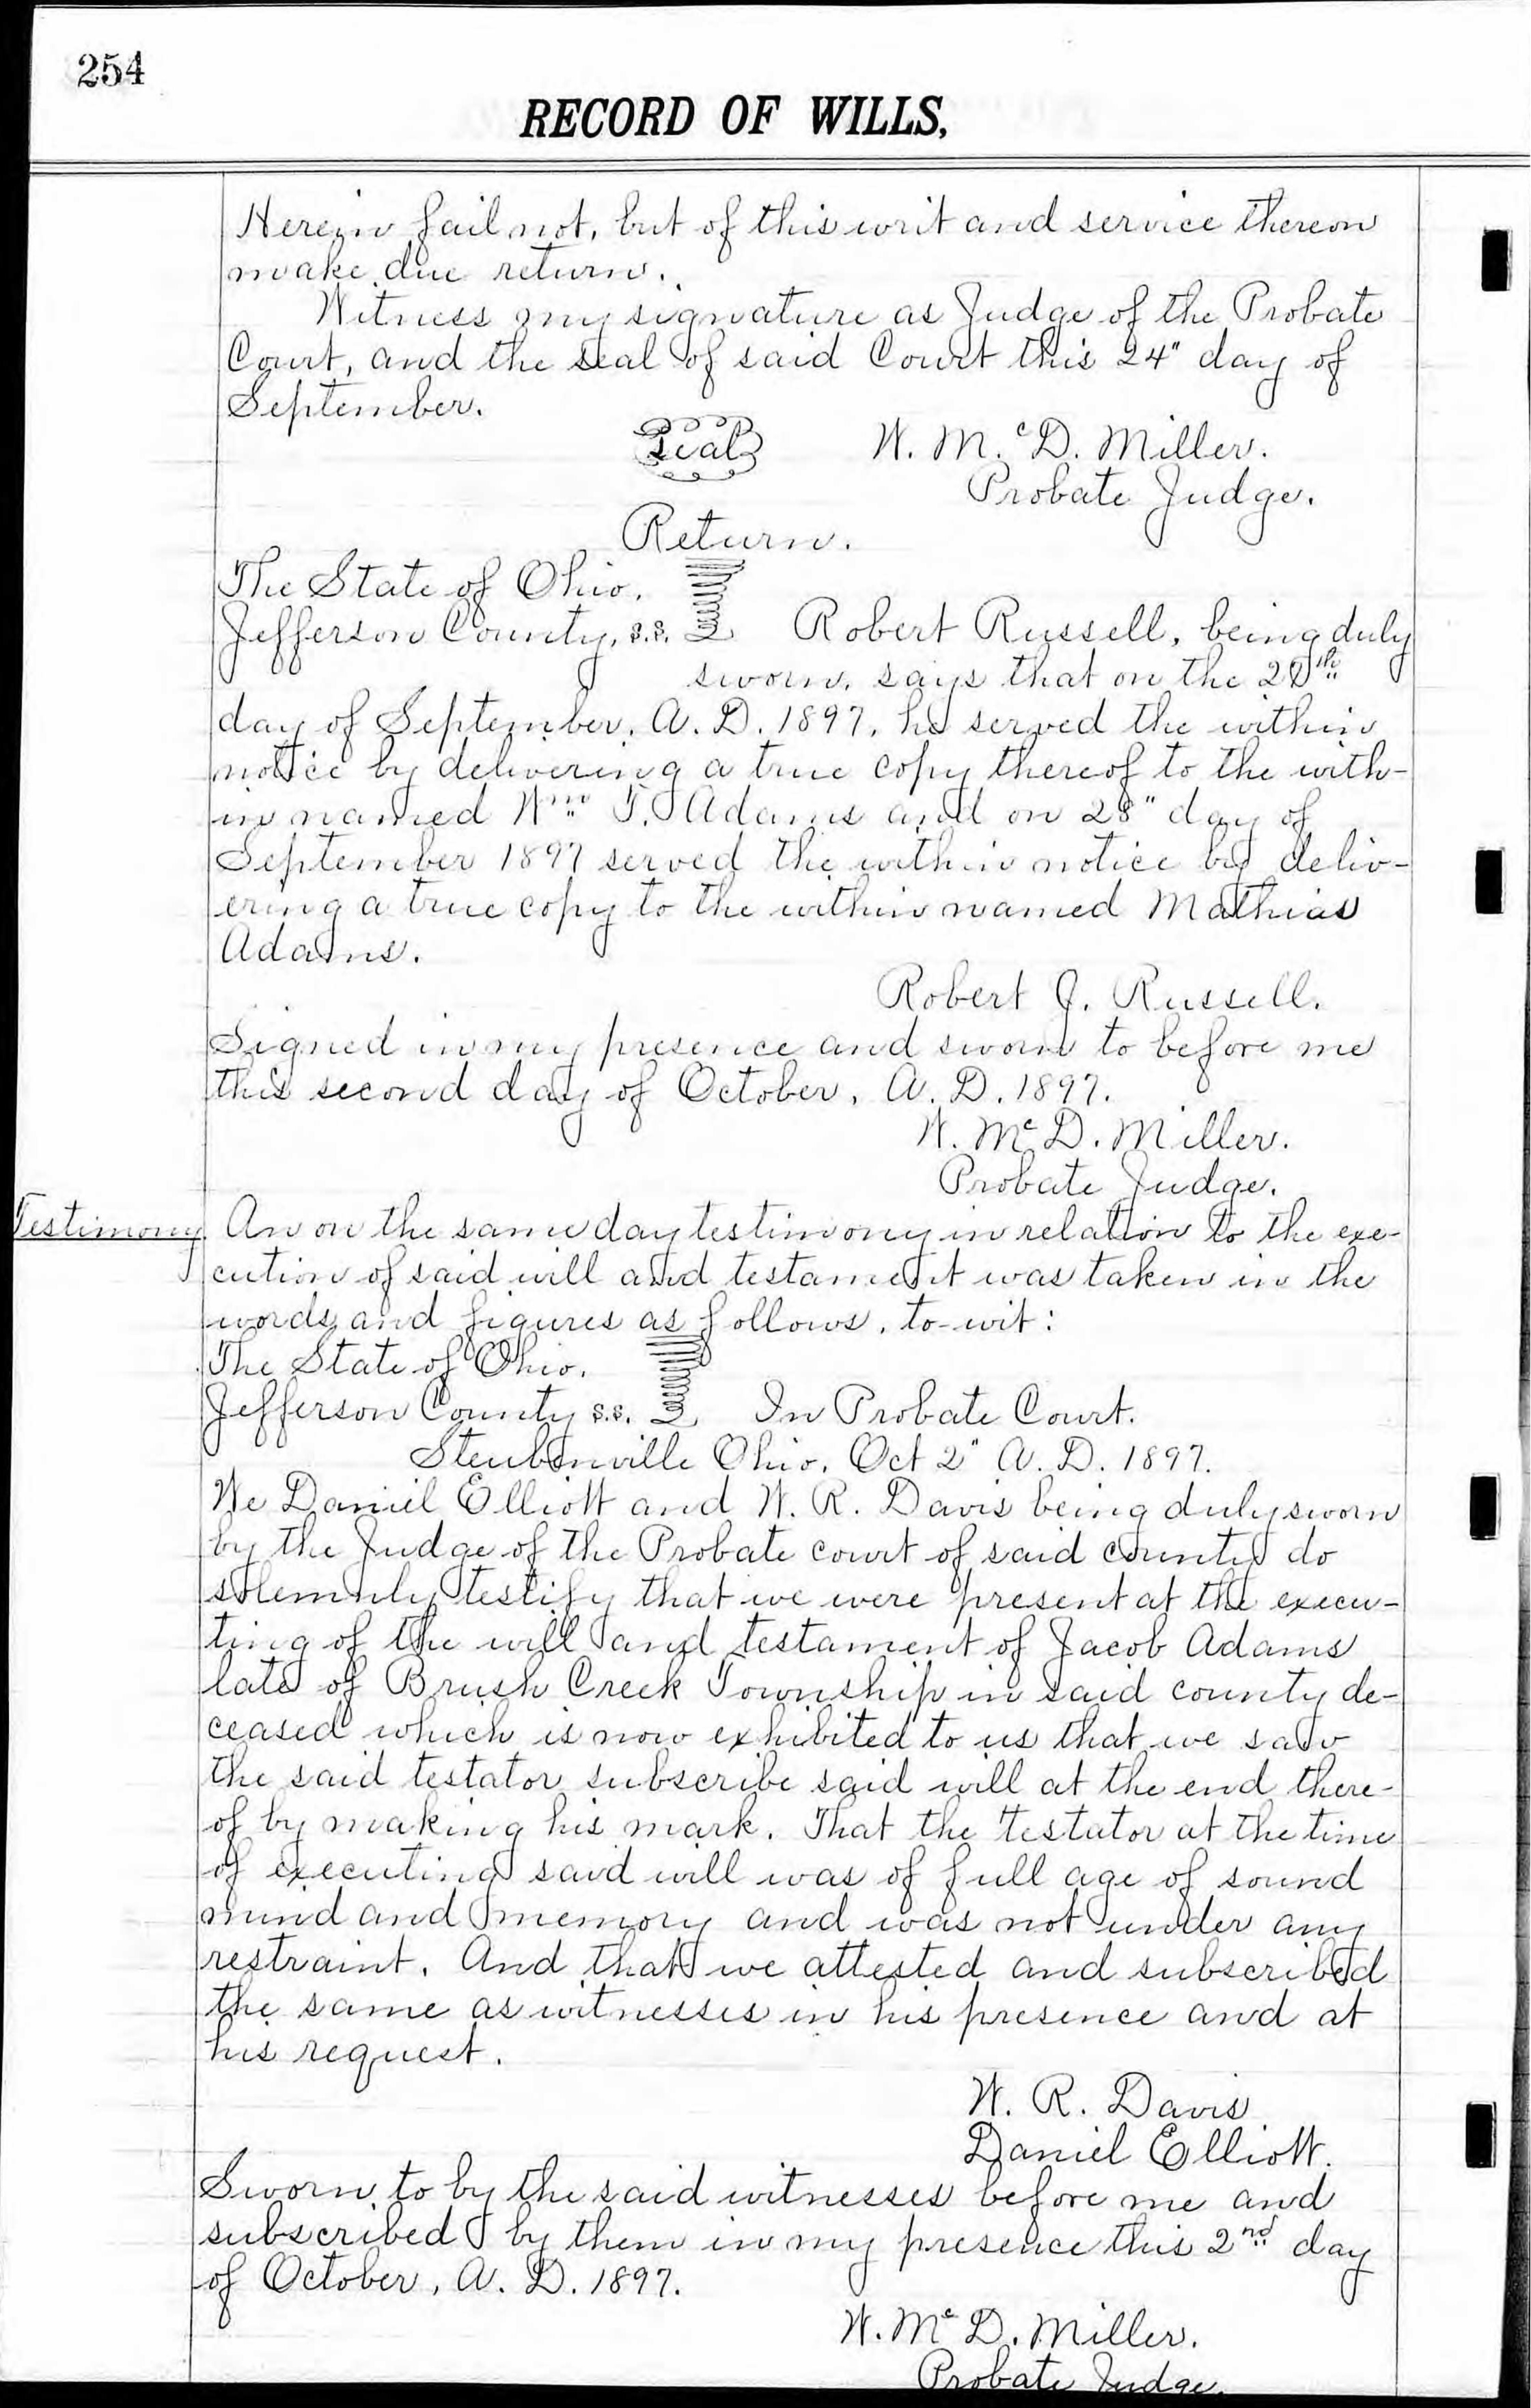 254
RECORD OF WILLS,
Herein fail not, but of this writ and service thereon
make due return.
Witness my signature as Judge of the Probate
Court, and the seal of said Court this 24" day of
September.
Seal W. McD. Miller.
Probate Judge.
Return.
The State of Ohio,
Jefferson County, s.s. Robert Russell, being duly
sworn, says that on the
day of September, A. D. 1897, he served the within
notice by delivering a true copy thereof to the with-
in named Wm T. Adams and on 28" day of
September 1897 served the within notice by deliv-
ering a true copy to the within named Mathias
Adams.
Robert J. Russell.
Signed in my presence and sworn to before me
this second day of October, A. D. 1897.
W. McD. Miller.
Probate Judge.
Testimony. An on the same day testimony in relation to the exe-
cution of said will and testament was taken in the
words and figures as follows, to-wit:
The State of Ohio,
Jefferson County s.s. In Probate Court.
Steubenville Ohio, Oct 2" A. D. 1897.
We Daniel Elliott and W. R. Davis being duly sworn
by the Judge of the Probate court of said county do
solemnly testify that we were present at the execu-
ting of the will and testament of Jacob Adams
late of Brush Creek Township in said county de-
ceased which is now exhibited to us that we saw
the said testator subscribe said will at the end there-
of by making his mark. That the testator at the time
of executing said will was of full age of sound
mind and memory and was not under any
restraint. And that we attested and subscribed
the same as witnesses in his presence and at
his request.
W. R. Davis
Daniel Elliott.
Sworn to by the said witnesses before me and
subscribed by them in my presence this 2nd day
of October, A. D. 1897.
W. McD. Miller.
Probate Judge.